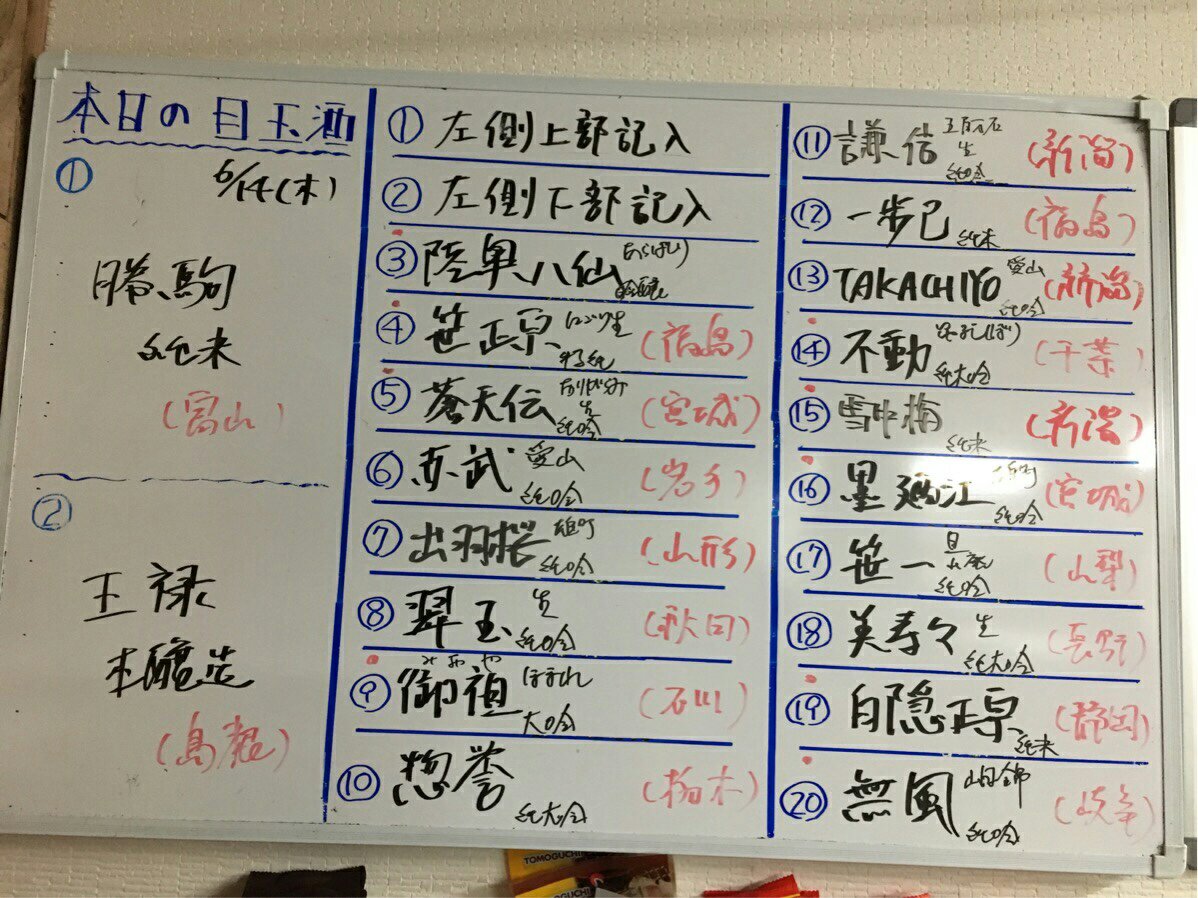 本日の目玉酒
6/14(木)
①
勝駒
純米
(富山)
②
王祿
本醸造
(島根)
① 左側上部記入
② 左側下部記入
③ 陸奥八仙 あらばしり 吟醸
④ 笹正宗 にごり生 特純 (福島)
⑤ 蒼天伝 生 純吟 (宮城)
⑥ 赤武 愛山 純吟 (岩手)
⑦ 出羽桜 雄町 純吟 (山形)
⑧ 翠玉 生 純吟 (秋田)
みおや
⑨ 御祖 ほまれ 大吟 (石川)
⑩ 惣誉 純大吟 (栃木)
⑪ 謙信 五百万石 生 純吟 (新潟)
⑫ 一歩己 純米 (福島)
⑬ TAKACHIYO 愛山 純吟 (新潟)
⑭ 不動 純大吟 (千葉)
⑮ 雪中梅 純米 (新潟)
⑯ 墨廼江 純吟 (宮城)
⑰ 笹一 純吟 (山梨)
⑱ 美寿々 生 純大吟 (長野)
⑲ 白隠正宗 純米 (静岡)
⑳ 無風 山田錦 純吟 (岐阜)
TOMOGUCHI
TOMOGUCHI